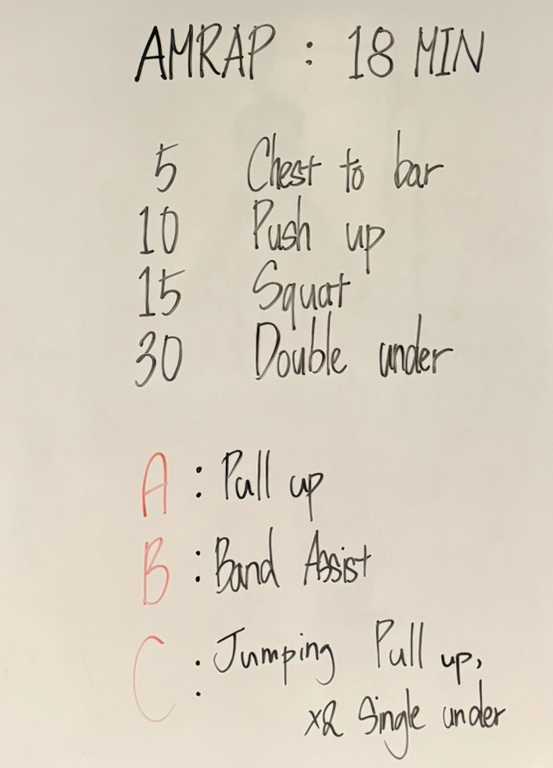 AMRAP : 18 MIN
5 Chest to bar
10 Push up
15 Squat
30 Double under
A : Pull up
B : Band Assist
C : Jumping Pull up,
x2 Single under